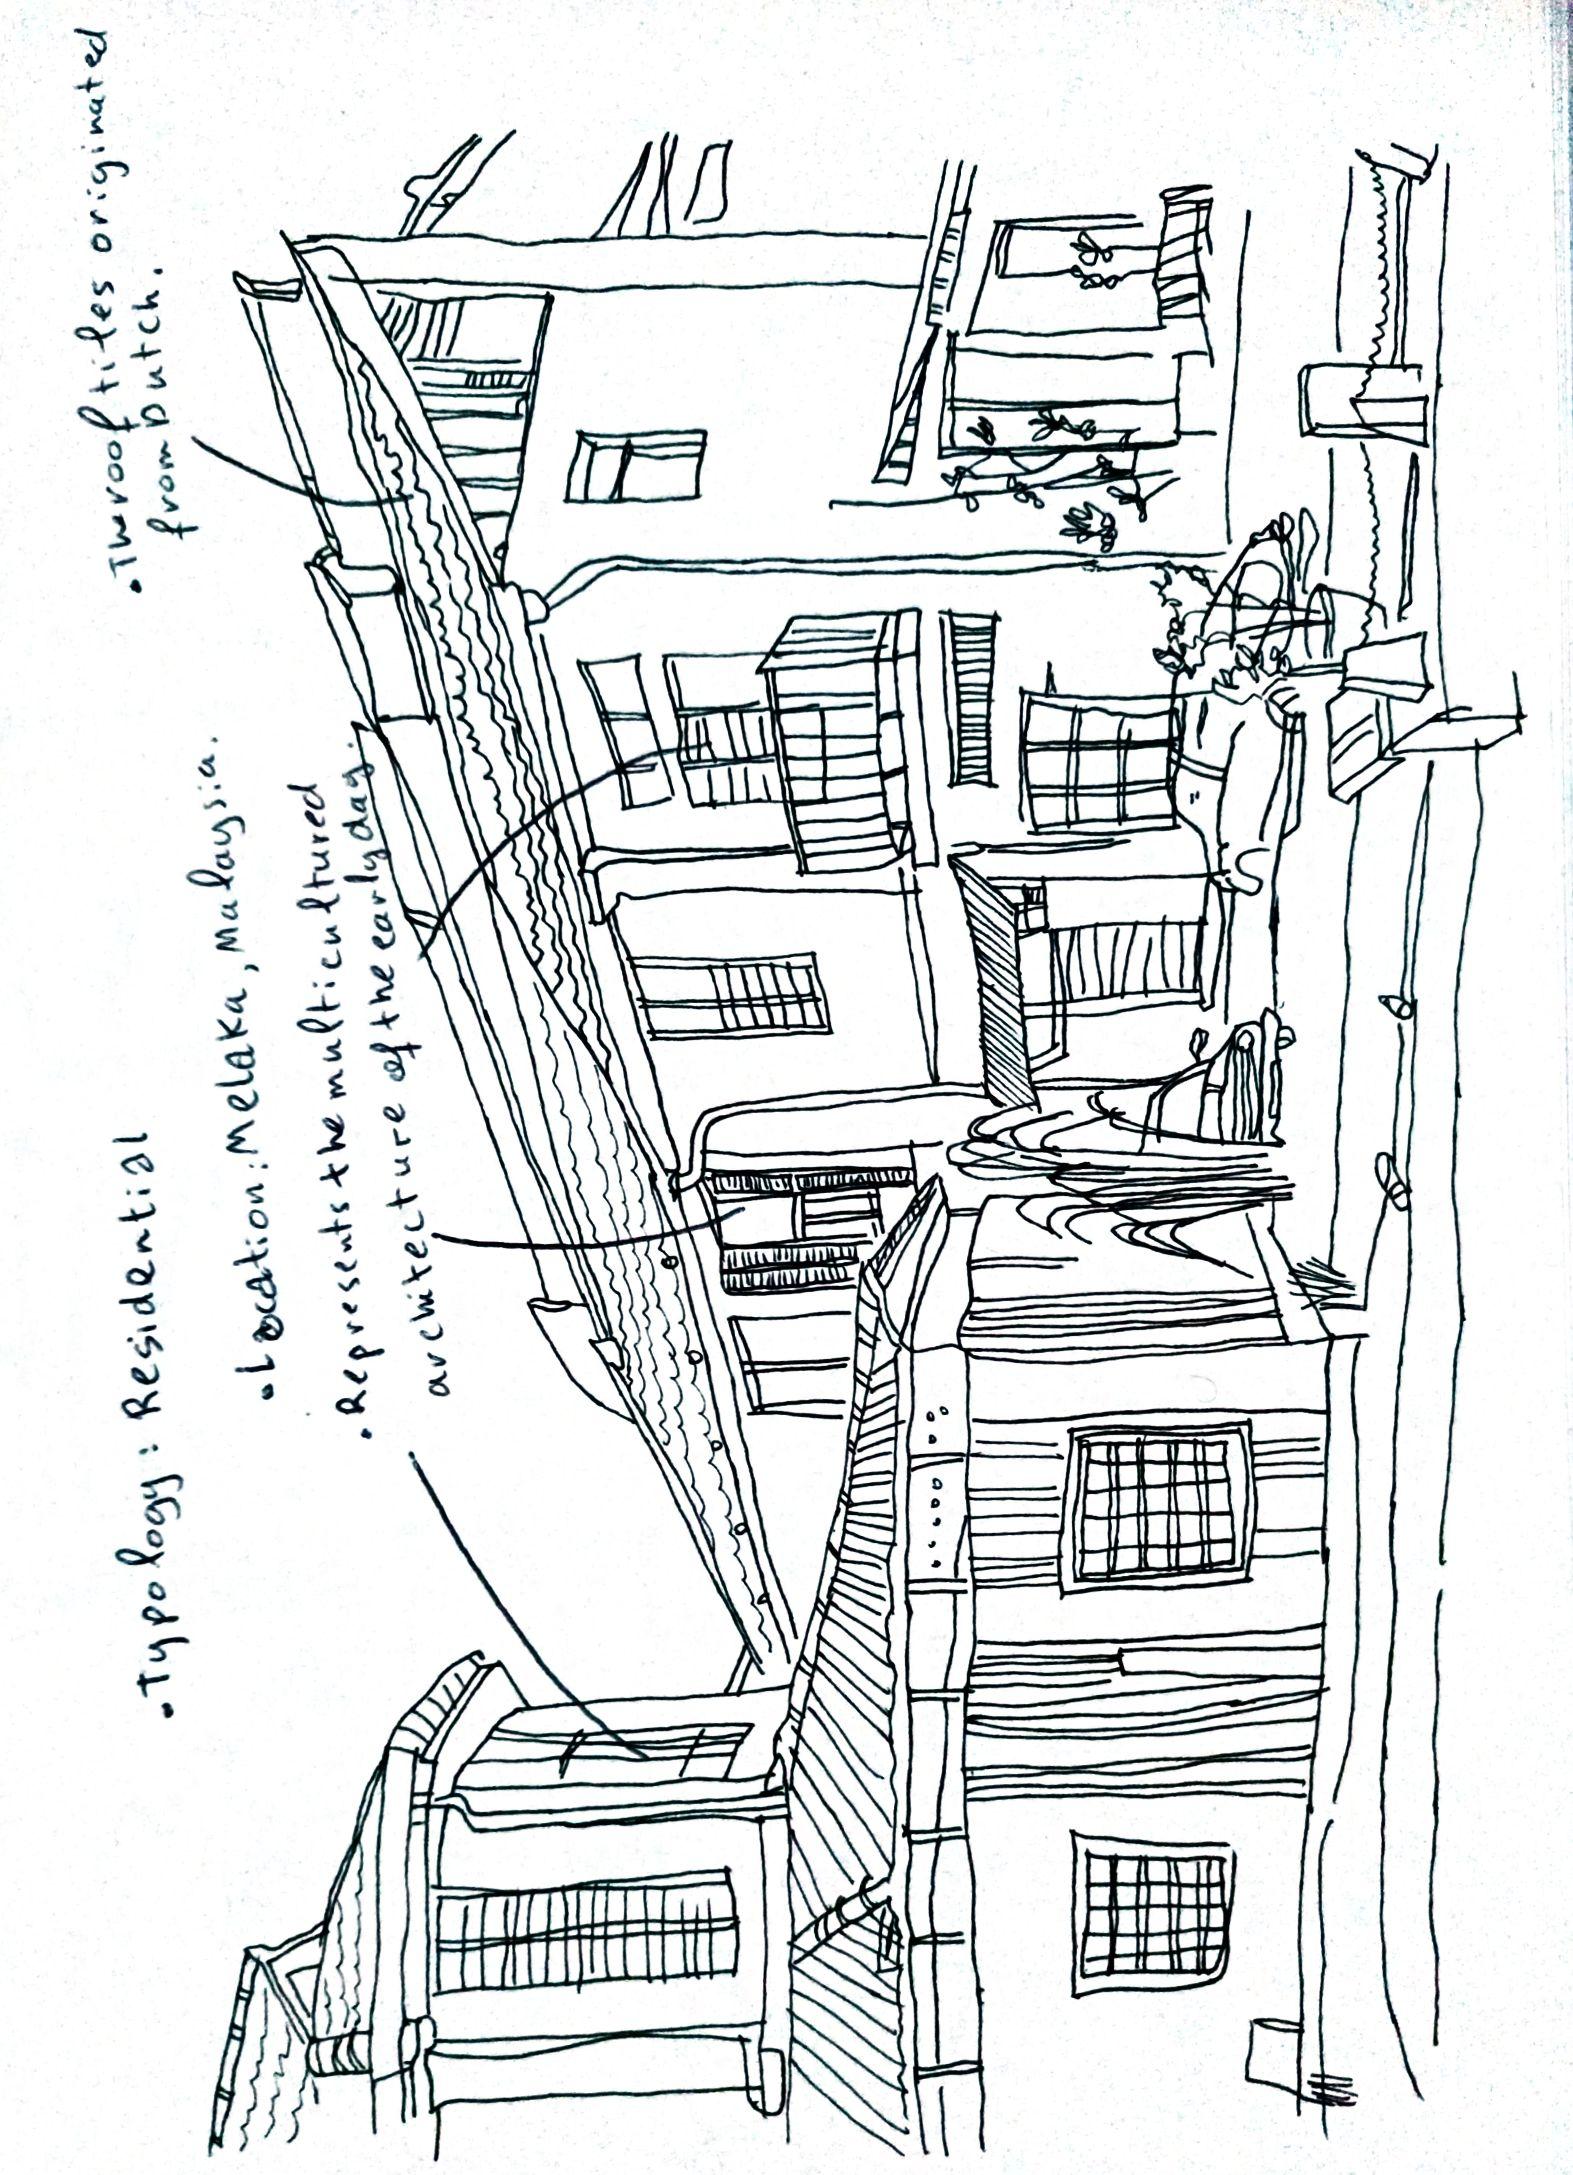 • Typology: Residential
• Location: Melaka, Malaysia.
• Represents the multicultured
architecture of the early day.
• The roof tiles originated
from Dutch.